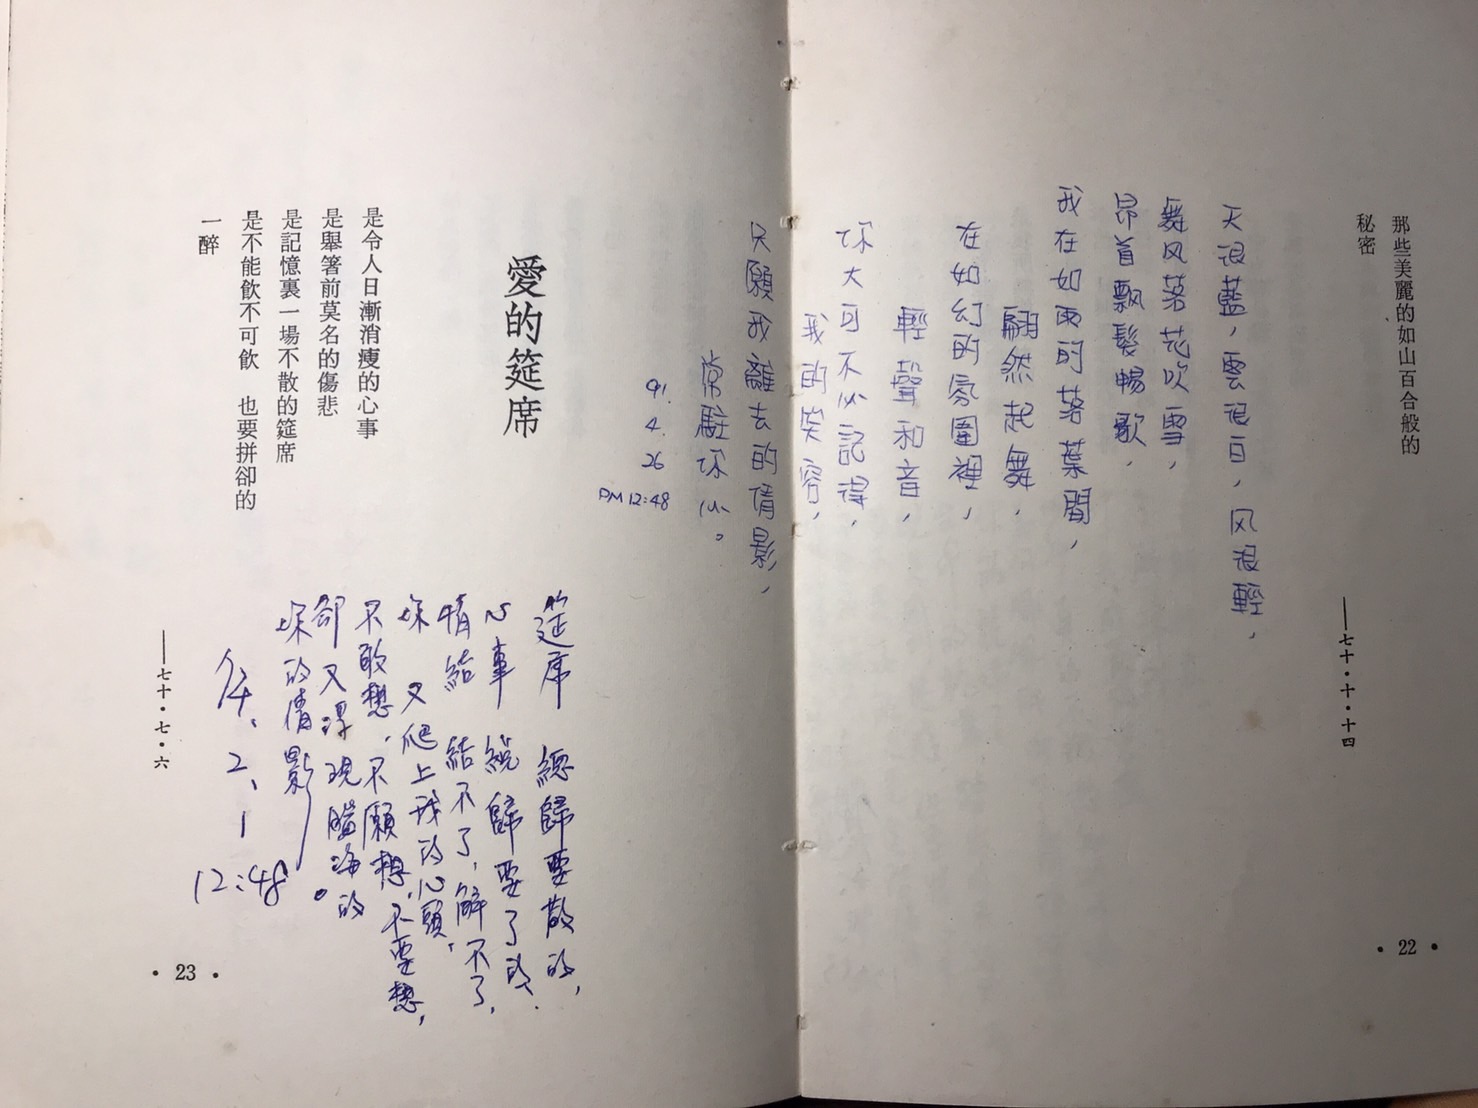 那些美麗的如山百合般的
秘密
——七十・十・十四
天很藍，雲很白，风很輕，
舞风落花吹雪，
昂首飘髮暢歌，
我在如雨的落葉間，
翩然起舞，
在如幻的氛圍裡，
輕聲和音，
你大可不必記得，
我的笑容，
只願我離去的倩影，
常駐你心。
91.
4.
26
PM 12:48
・22・
愛的筵席
是令人日漸消瘦的心事
是舉箸前莫名的傷悲
是記憶裏一場不散的筵席
是不能飲不可飲　也要拼卻的
一醉
——七十・七・六
筵席 總歸要散的，
心事 總歸要了的，
情結 結不了，解不了，
你 又爬上我的心頭，
不敢想，不願想，不要想，
卻又浮現腦海的
你的倩影。
2、1
12:48
・23・